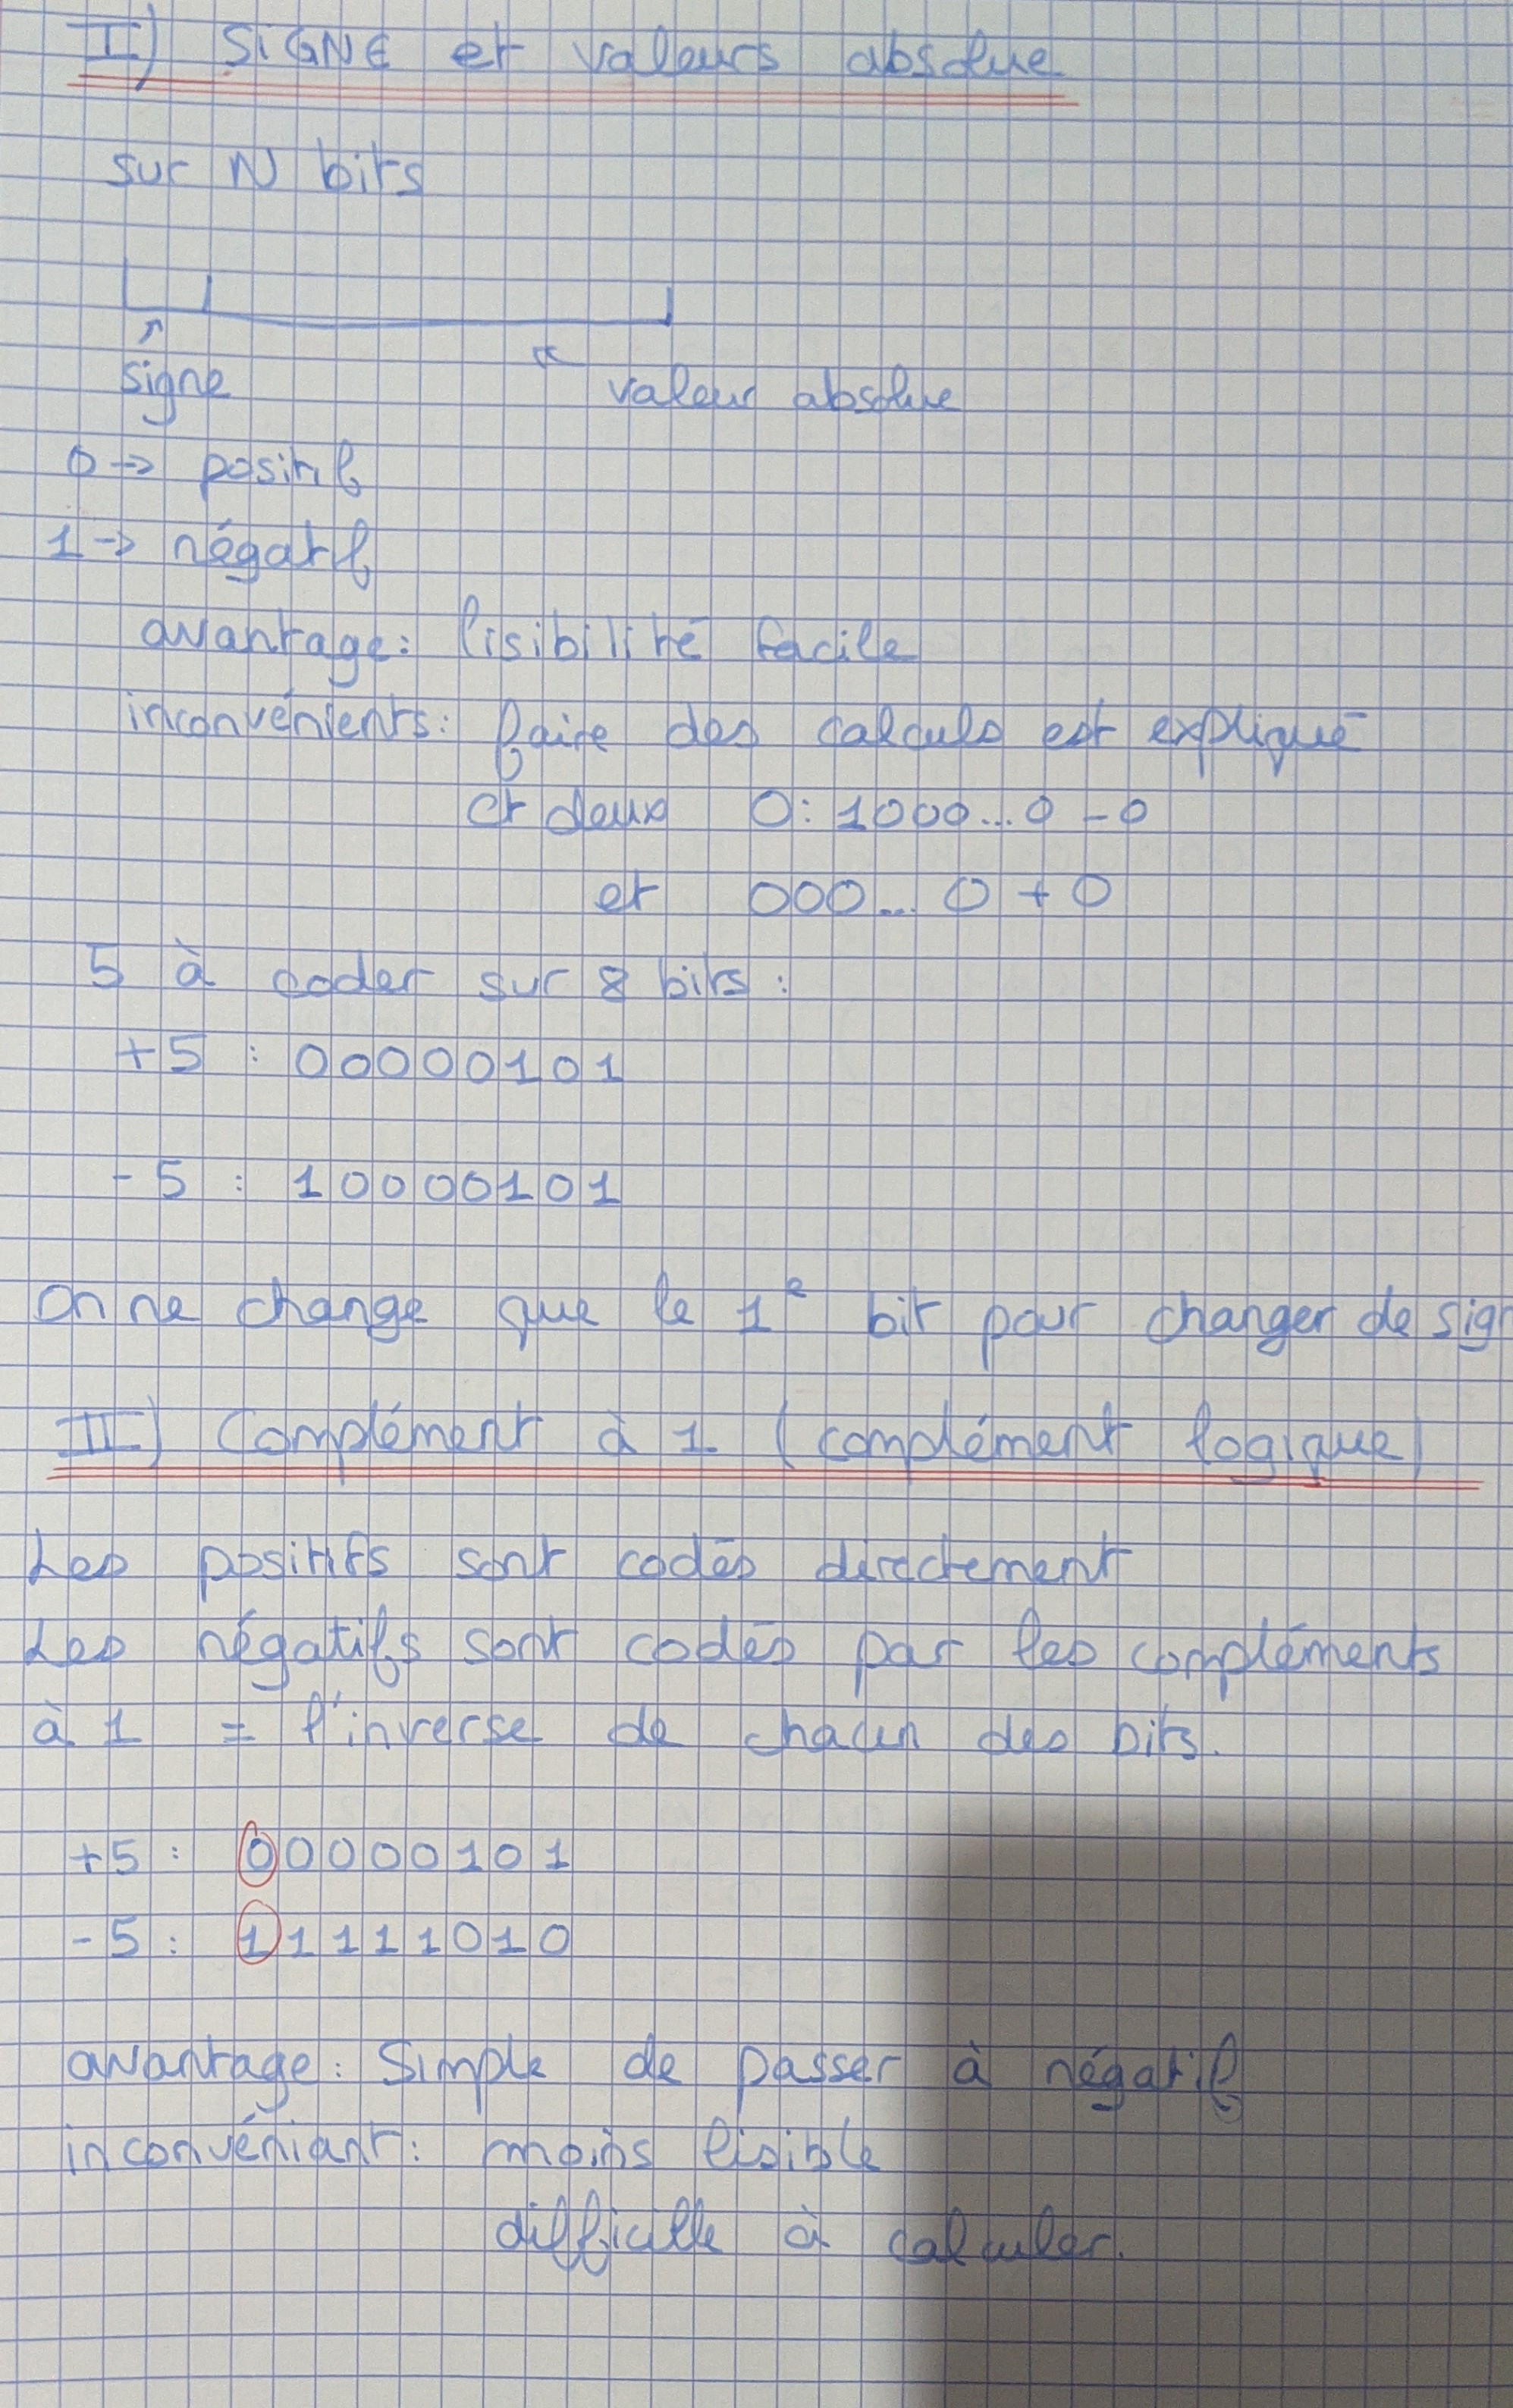 I) SIGNE et valeurs absolue
sur N bits
signe
valeur absolue
0 → positif
1 → négatif
avantage: lisibilité facile
inconvénients: faire des calculs est expliqué
et deux 0: 1000...0 -0
et 000... 0 +0
5 à coder sur 8 bits :
+5 : 00000101
-5 : 10000101
On ne change que le 1e bit pour changer de sign
II) Complément à 1 (complément logique)
Les positifs sont codés directement
Les négatifs sont codés par les compléments
à 1 = l'inverse de chacun des bits.
+5 : 00000101
-5 : 11111010
avantage: Simple de passer à négatif
inconvéniant: moins lisible
difficille à calculer.